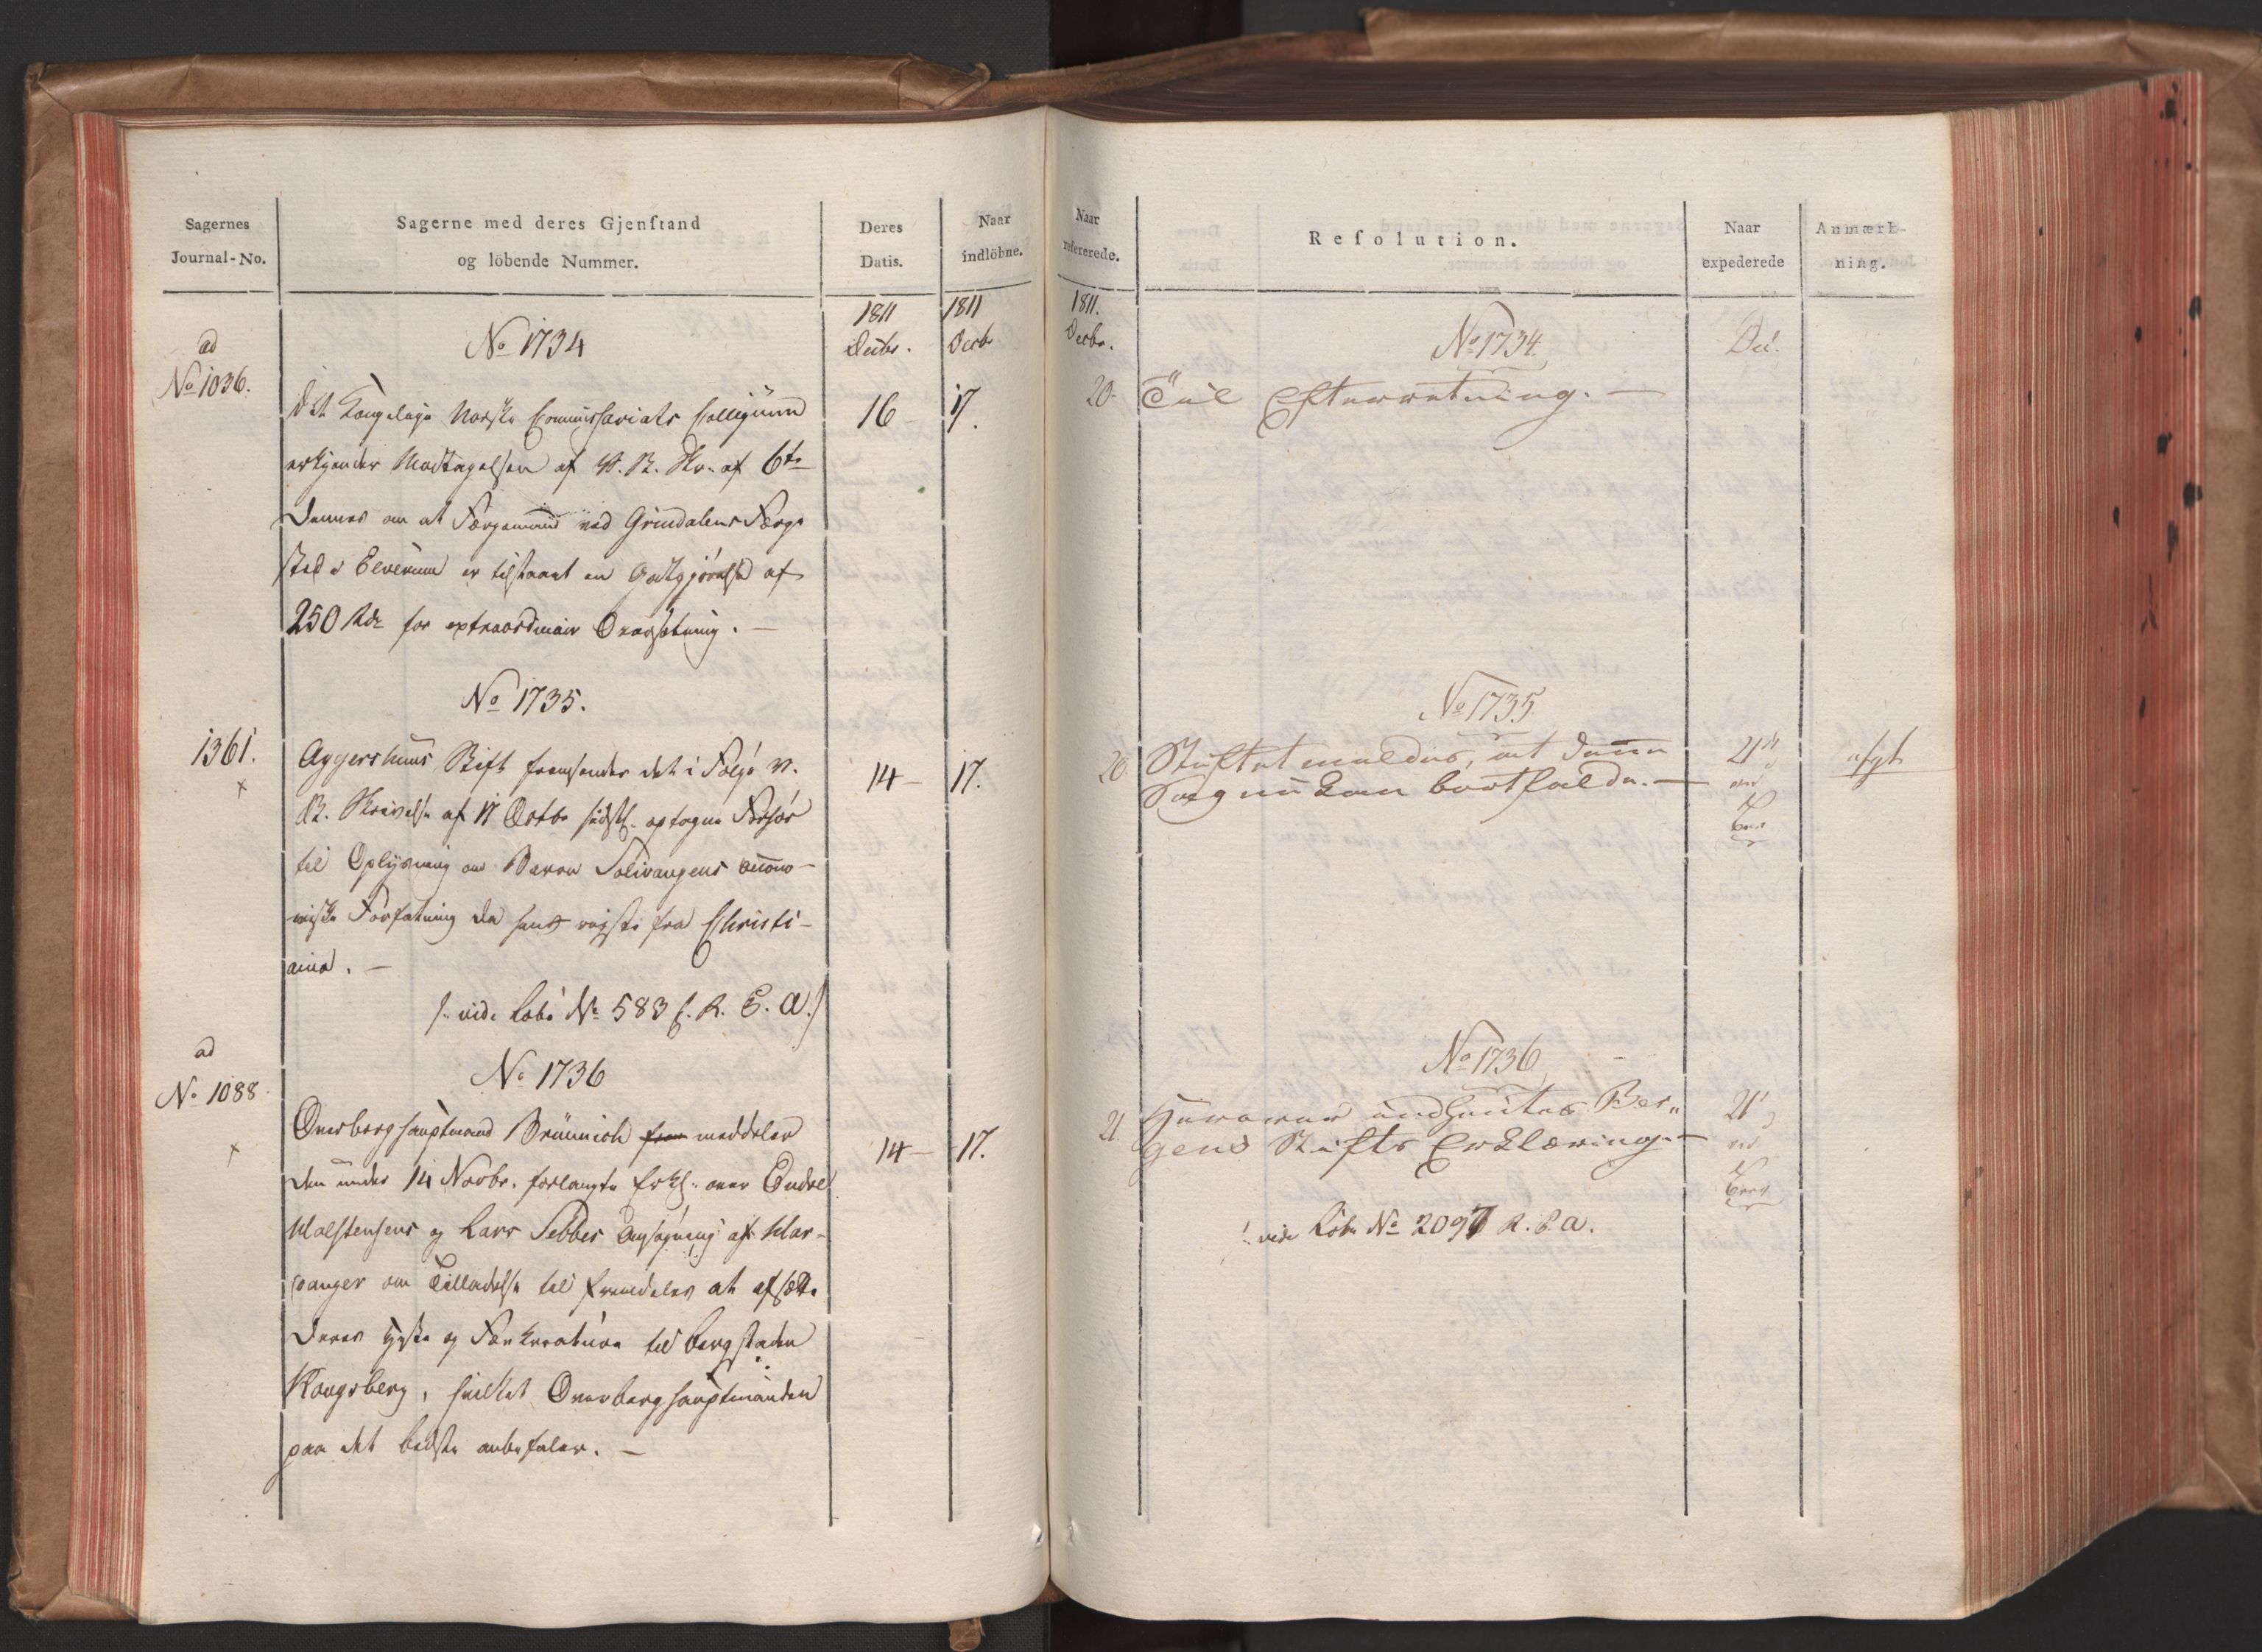 Sagernes
Journal-No.
Sagerne med deres Gjenstand
og löbende Nummer.
Deres
Datis.
Naar
indlöbne.
1811
Decbr.
1811
Decb
ad
No 1036.
No 1734
Det Kongelige Norske Commissariats Collegium
16 - 17.
erkjender Modtagelsen af R. Skr. af 6te
dennes om at Færgemand ved Grindalens Færge
sted i Elverum er tilstaaet en Godtgjörelse af
250 Rdr for extraordinair Oversætning. —
No 1735.
1361.
Aggershuus Stift fremsender det i Fölge
14 - 17.
R. Skrivelse af 17 Octbr sidstl. optagne Forhör
til Oplysning om Baron oecono-
miske Forfatning da han reiste fra Christi-
ania. —
/: vide Lobe No 583 f. R. E. A. /
ad
No 1088.
No 1736
Overberghauptmand Brünnich meddeler
14 - 17.
den under 14 Novbr. forlangte Erkl. over Endre
og Lars Sebbes Ansøgning af
vanger om Tilladelse til fremdeles at afsætte
deres og Fæekreature til Bergstaden
Kongsberg, hvilket Overberghauptmanden
paa det bedste anbefaler. —
Naar
refererede.
Resolution.
Naar
expederede
Anmærk-
ning.
1811.
Decbr.
No 1734.
Dec.
20. Til Efterretning. —
No 1735.
20. Stiftet meldes, at denne
21
afgt
Sag nu kan bortfalde. —
No 1736
21. Herover indhentes Ber„
21
gens Stifts Erklæring. —
/: vide Löbe No 2097 R. E. A.